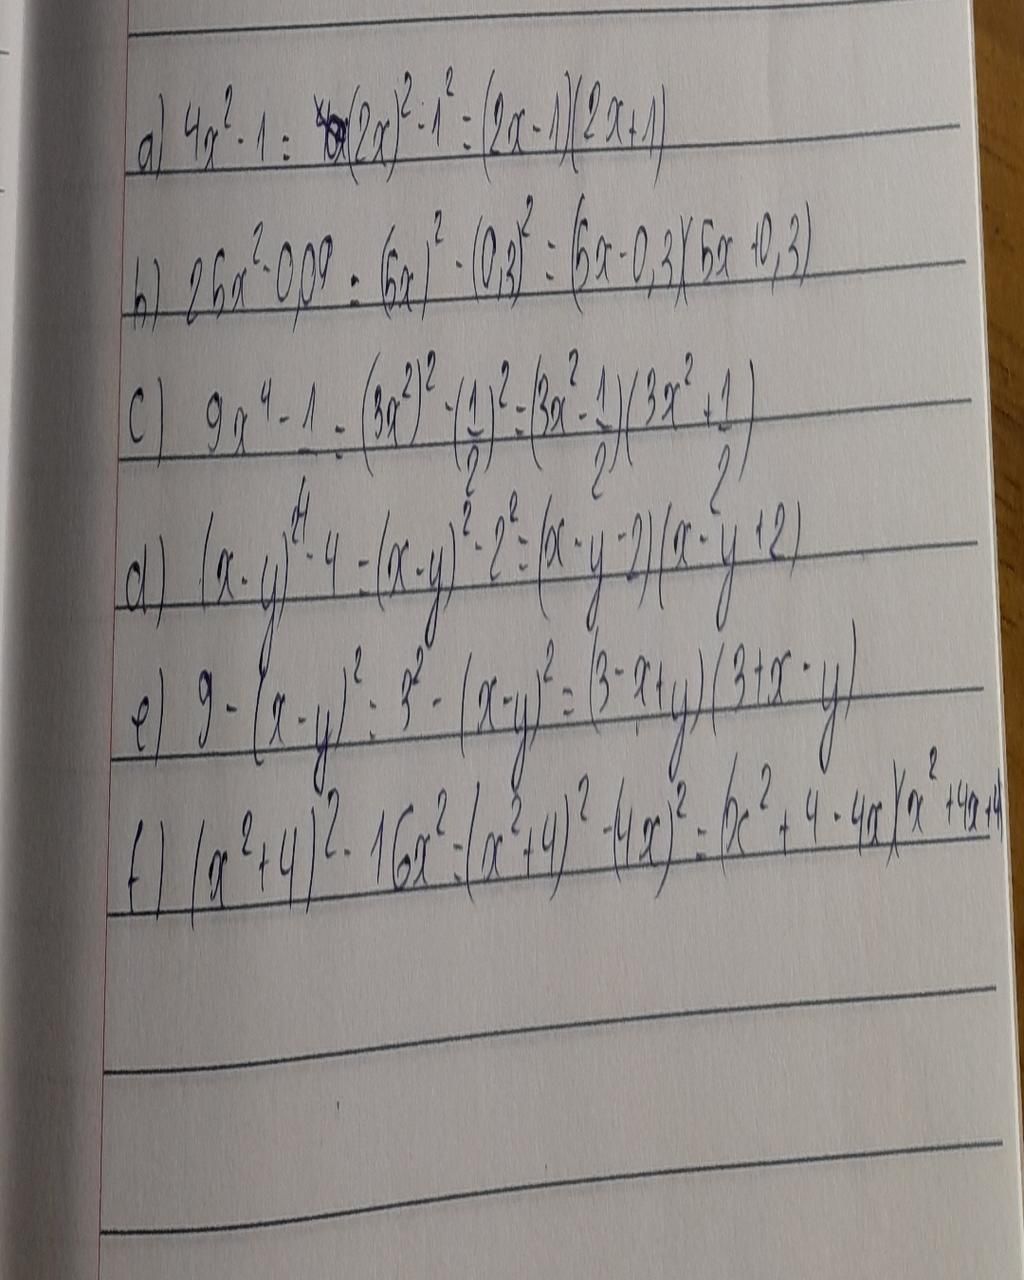 a) 4x² - 1 = (2x)² - 1² = (2x - 1)(2x + 1)
b) 25x² - 0,09 = (5x)² - (0,3)² = (5x - 0,3)(5x + 0,3)
c) 9x⁴ - 1/4 = (3x²)² - (1/2)² = (3x² - 1/2)(3x² + 1/2)
d) (x - y)² - 4 = (x - y)² - 2² = (x - y - 2)(x - y + 2)
e) 9 - (x - y)² = 3² - (x - y)² = (3 - x + y)(3 + x - y)
f) (x² + 4)² - 16x² = (x² + 4)² - (4x)² = (x² + 4 - 4x)(x² + 4x + 4